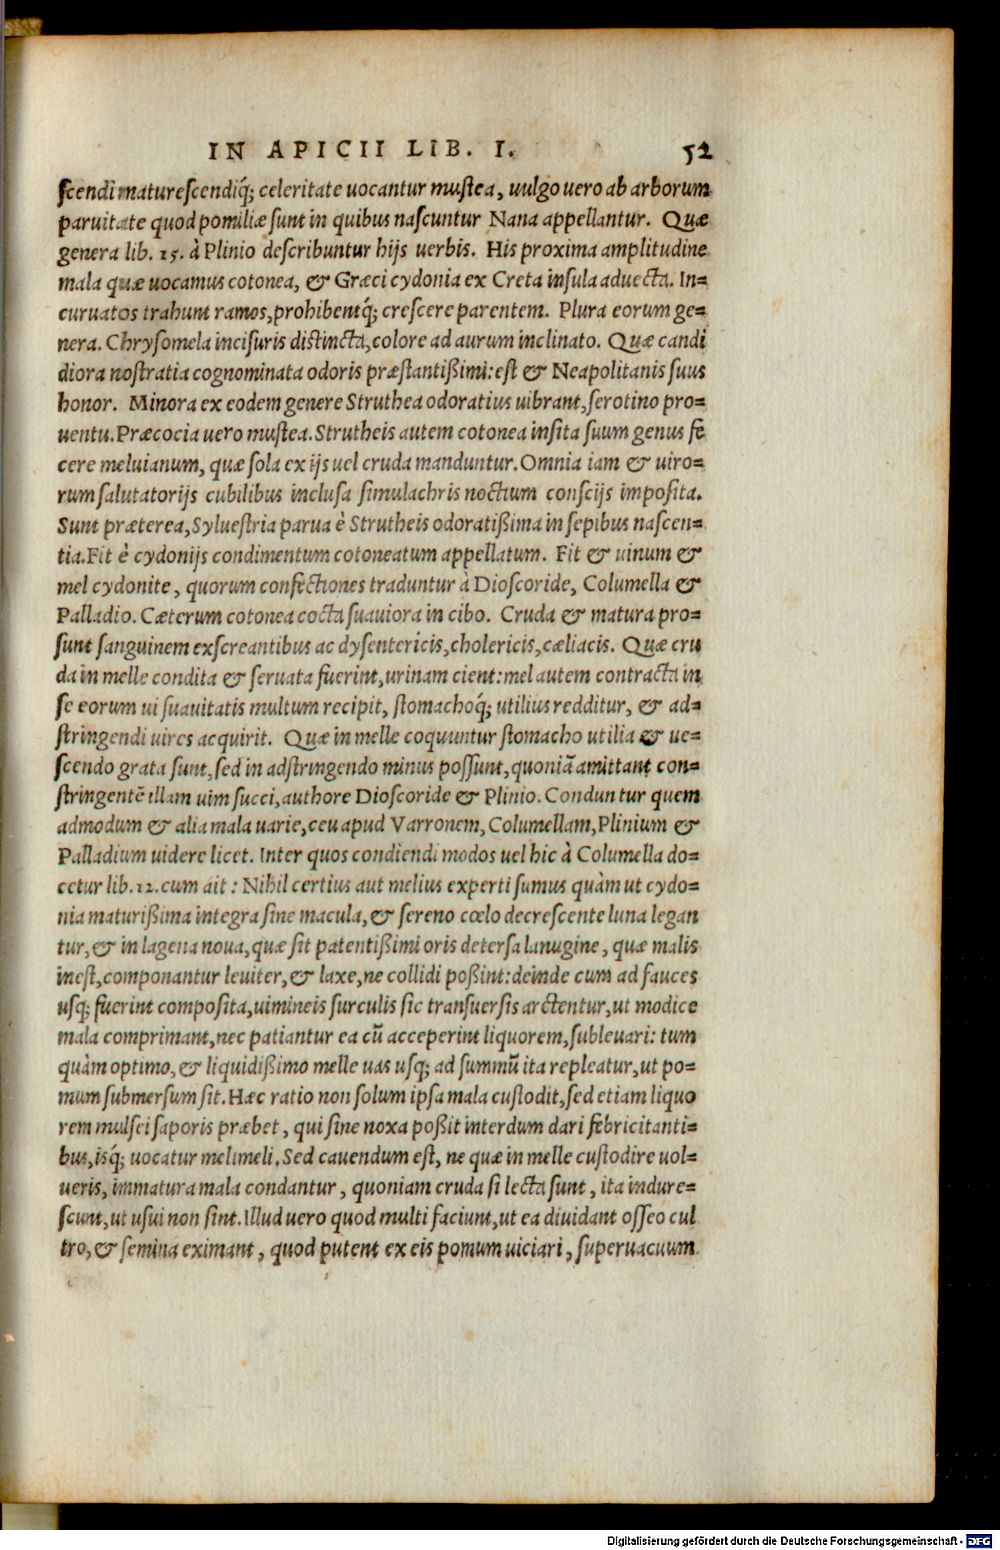 IN APICII LIB. I. 52
scendi maturescendiq́; celeritate uocantur mustea, uulgo uero ab arborum
paruitate quod pomiliæ sunt in quibus nascuntur Nana appellantur. Quæ
genera lib. 15. à Plinio describuntur hijs uerbis. His proxima amplitudine
mala quæ uocamus cotonea, & Græci cydonia ex Creta insula aduecta. In=
curuatos trahunt ramos, prohibentq́; crescere parentem. Plura eorum ge=
nera. Chrysomela incisuris distincta, colore ad aurum inclinato. Quæ candi
diora nostratia cognominata odoris præstantißimi: est & Neapolitanis suus
honor. Minora ex eodem genere Struthea odoratius uibrant, serotino pro=
uentu. Præcocia uero mustea. Strutheis autem cotonea insita suum genus fe
cere meluianum, quæ sola ex ijs uel cruda manduntur. Omnia iam & uiro=
rum salutatorijs cubilibus inclusa simulachris noctium conscijs imposita.
Sunt præterea, Syluestria parua è Strutheis odoratißima in sepibus nascen=
tia. Fit è cydonijs condimentum cotoneatum appellatum. Fit & uinum &
mel cydonite, quorum confectiones traduntur à Dioscoride, Columella &
Palladio. Cæterum cotonea cocta suauiora in cibo. Cruda & matura pro=
sunt sanguinem exscreantibus ac dysentericis, cholericis, cæliacis. Quæ cru
da in melle condita & seruata fuerint, urinam cient: mel autem contracta in
se eorum ui suauitatis multum recipit, stomachoq́; utilius redditur, & ad=
stringendi uires acquirit. Quæ in melle coquuntur stomacho utilia & ue=
scendo grata sunt, sed in adstringendo minus possunt, quoniã amittant con=
stringentẽ illam uim succi, authore Dioscoride & Plinio. Conduntur quem
admodum & alia mala uarie, ceu apud Varronem, Columellam, Plinium &
Palladium uidere licet. Inter quos condiendi modos uel hic à Columella do=
cetur lib. 12. cum ait: Nihil certius aut melius experti sumus quàm ut cydo=
nia maturißima integra sine macula, & sereno cœlo decrescente luna legan
tur, & in lagena noua, quæ sit patentißimi oris detersa lanugine, quæ malis
inest, componantur leuiter, & laxe, ne collidi poßint: deinde cum ad fauces
usq́; fuerint composita, uimineis surculis sic transuersis arctentur, ut modice
mala comprimant, nec patiantur ea cũ acceperint liquorem, subleuari: tum
quàm optimo, & liquidißimo melle uas usq́; ad summũ ita repleatur, ut po=
mum submersum sit. Hæc ratio non solum ipsa mala custodit, sed etiam liquo
rem mulsei saporis præbet, qui sine noxa poßit interdum dari febricitanti=
bus, isq́; uocatur melimeli. Sed cauendum est, ne quæ in melle custodire uol=
ueris, immatura mala condantur, quoniam cruda si lecta sunt, ita indure=
scunt, ut usui non sint. Illud uero quod multi faciunt, ut ea diuidant osseo cul
tro, & semina eximant, quod putent ex eis pomum uiciari, superuacuum
Digitalisierung gefördert durch die Deutsche Forschungsgemeinschaft - DFG